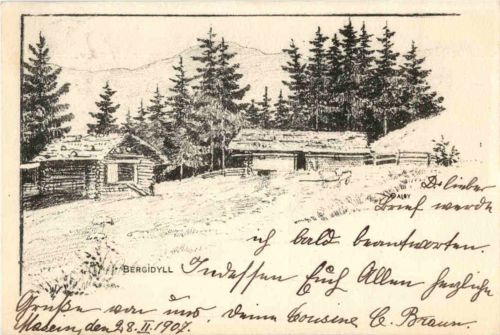 DAISY
D. lieber
Brief werde
ich bald beantworten.
BERGIDYLL
Indessen Euch Allen herzliche
Grüße von uns. deine Cousine C. Braun.
den 28. II. 1907.